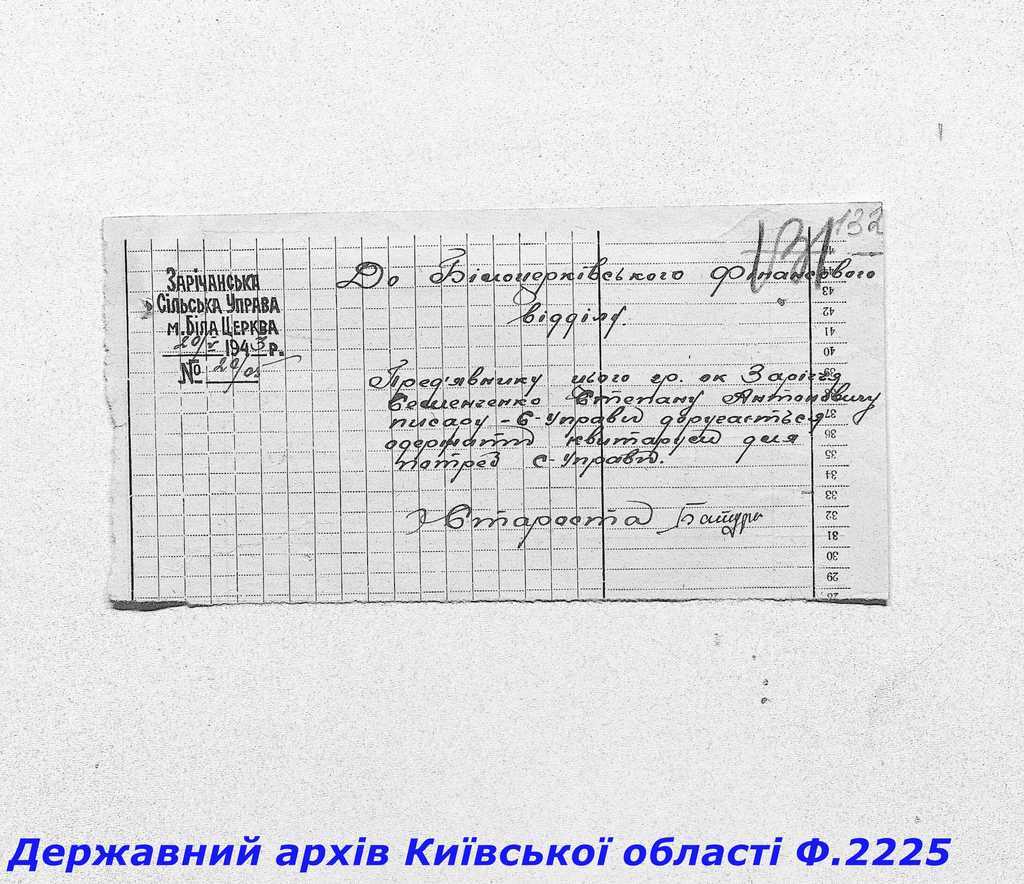 131 132
ЗАРІЧАНСЬКА
СІЛЬСЬКА УПРАВА
м. БІЛА ЦЕРКВА
20/V 1943 р.
№ 20/05
До Білоцерківського Фінансового
відділу.
Пред'явнику цього гр. ок Заріччя
Семенченко Степану Антоновичу
писарю - С-Управи доручається
одержати квитаруси для
потреб С-Управи.
Староста
43
42
41
40
39
38
37
36
35
34
33
32
31
30
29
28
Державний архів Київської області Ф.2225